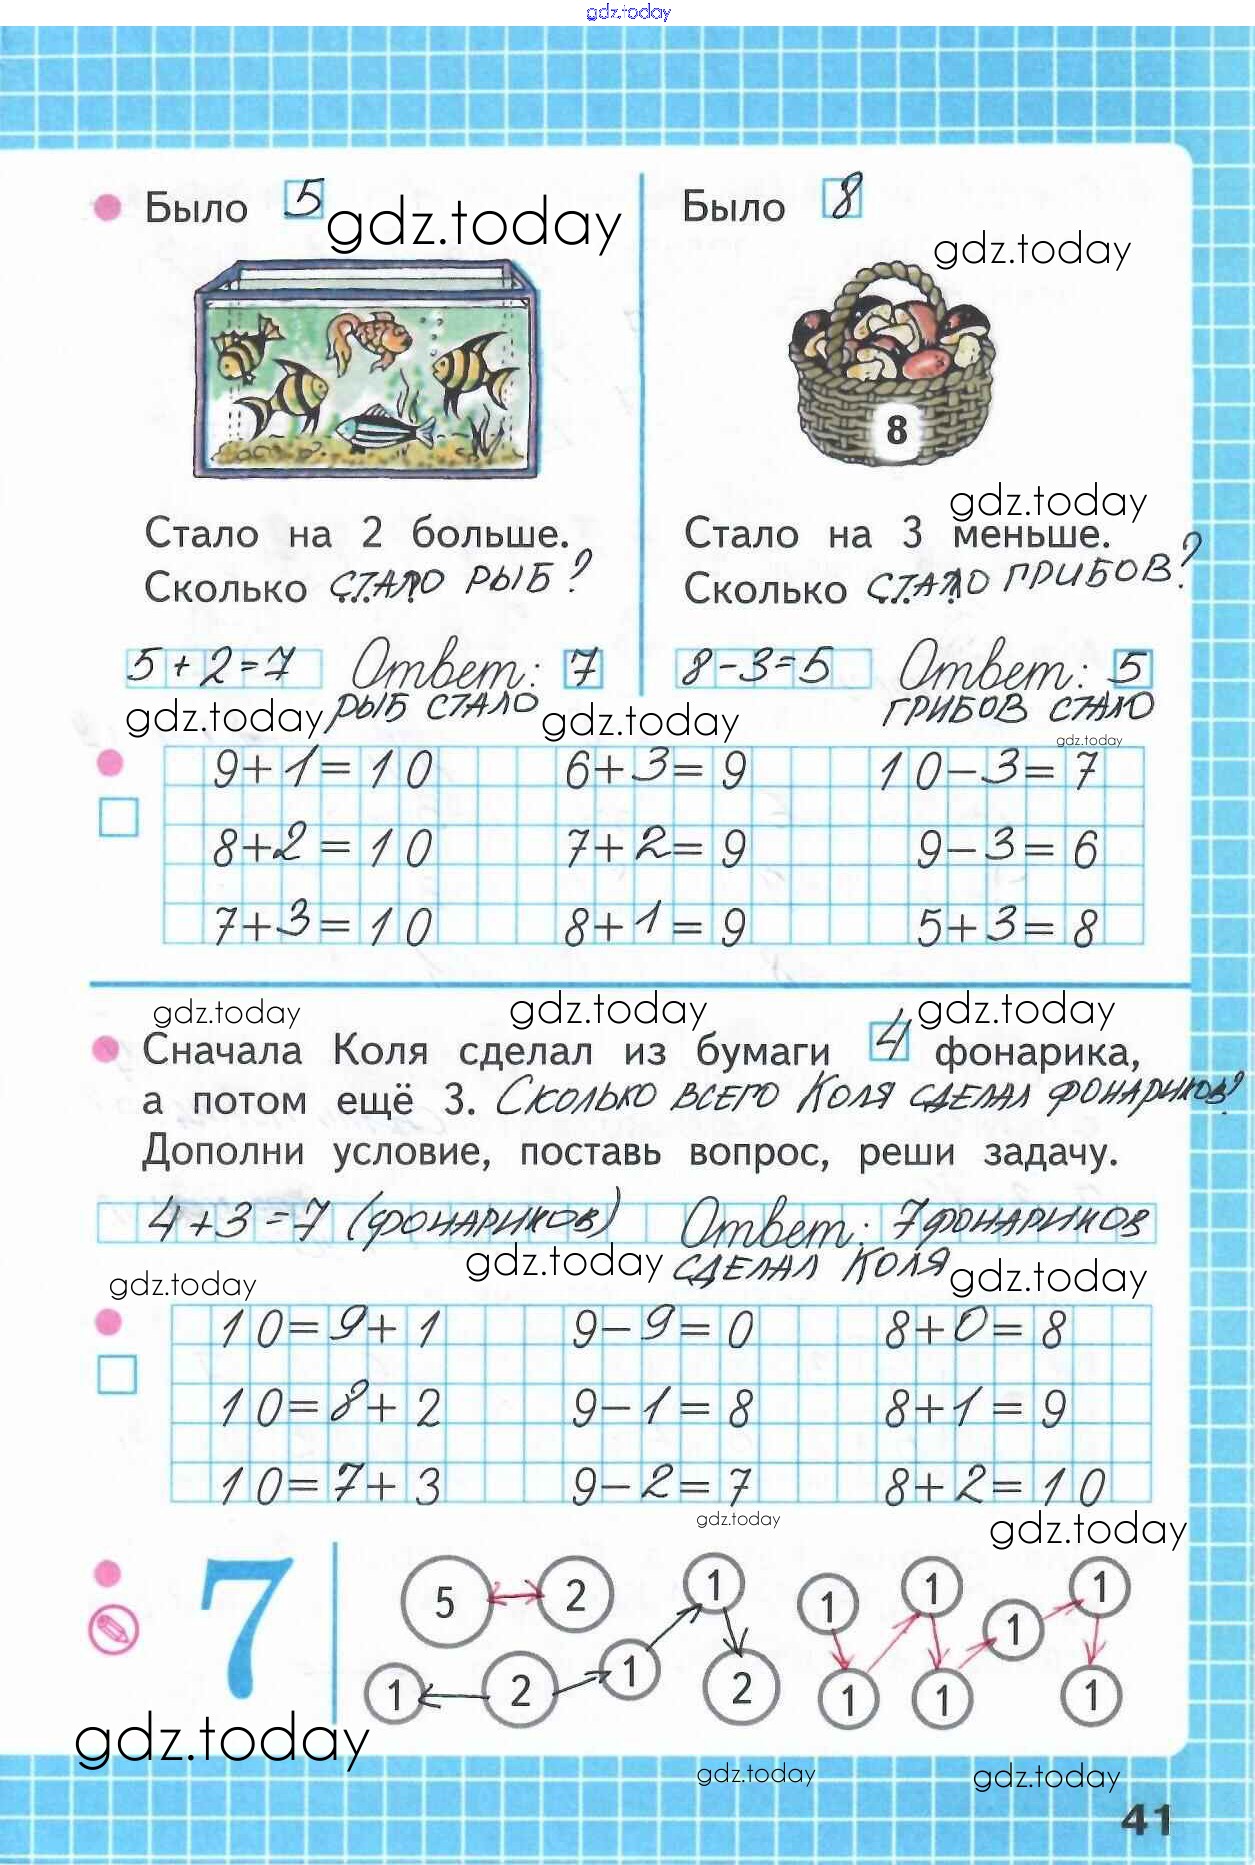 gdz.today
Было 5
gdz.today
Было 8
gdz.today
8
gdz.today
Стало на 2 больше.
Сколько СТАЛО РЫБ?
Стало на 3 меньше.
Сколько СТАЛО ГРИБОВ?
5+2=7 Ответ: 7
РЫБ СТАЛО
8-3=5 Ответ: 5
ГРИБОВ СТАЛО
gdz.today gdz.today gdz.today
9+1=10 6+3=9 10-3=7
8+2=10 7+2=9 9-3=6
7+3=10 8+1=9 5+3=8
gdz.today gdz.today gdz.today
Сначала Коля сделал из бумаги 4 фонарика,
а потом ещё 3. Сколько всего Коля сделал фонариков?
Дополни условие, поставь вопрос, реши задачу.
4+3=7 (фонариков) Ответ: 7 фонариков
СДЕЛАЛ КОЛЯ
gdz.today gdz.today gdz.today
10=9+1 9-9=0 8+0=8
10=8+2 9-1=8 8+1=9
10=7+3 9-2=7 8+2=10
gdz.today gdz.today
7
5 2 1 1 1 1 1
1 2 1 2 1 1 1
gdz.today gdz.today gdz.today
41